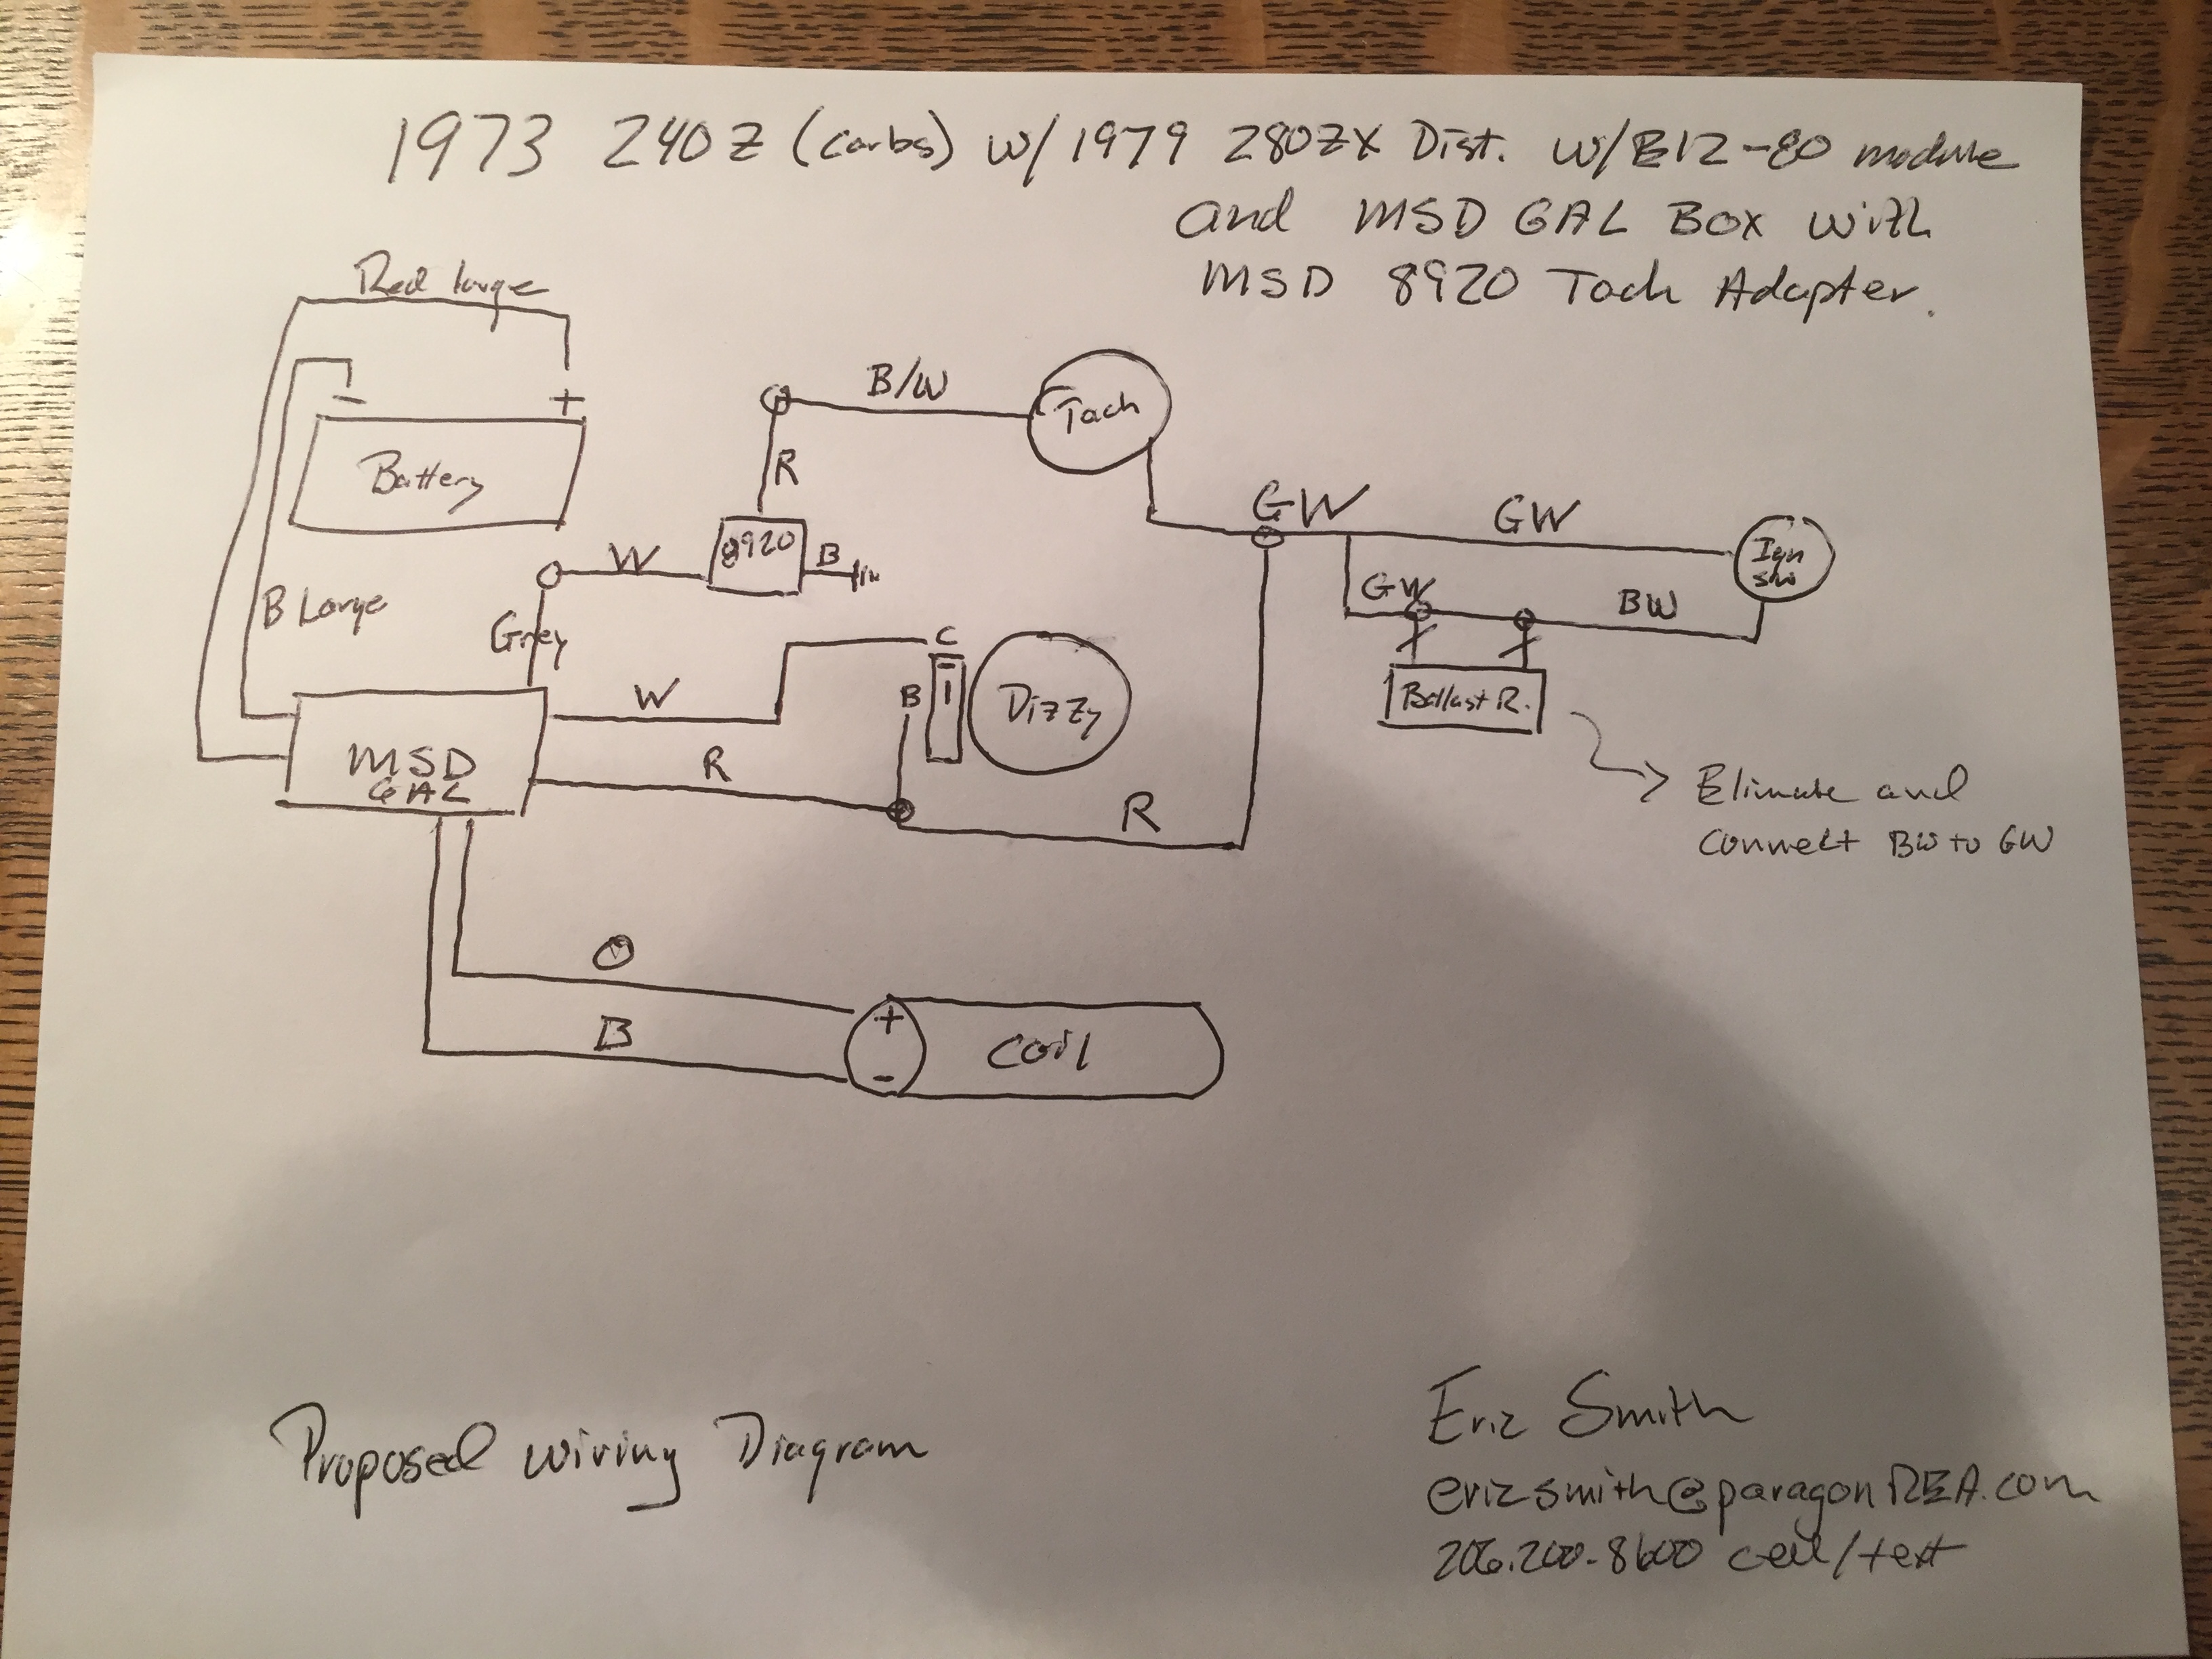 1973 240Z (Carbs) w/ 1979 280ZX Dist. w/E12-80 module
and MSD 6AL Box with
MSD 8920 Tach Adapter.
Red large
B/W
Tach
- +
Battery
R
GW
GW
8920
B
W
Ign
sw
GW
BW
B Large
Grey
C
B
Dizzy
Ballast R.
W
MSD
6AL
R
R
Elimate and
Connect BW to GW
O
B
+
-
Coil
Proposed wiring Diagram
Eric Smith
ericsmith@paragonREA.com
206.200-8600 cell/text